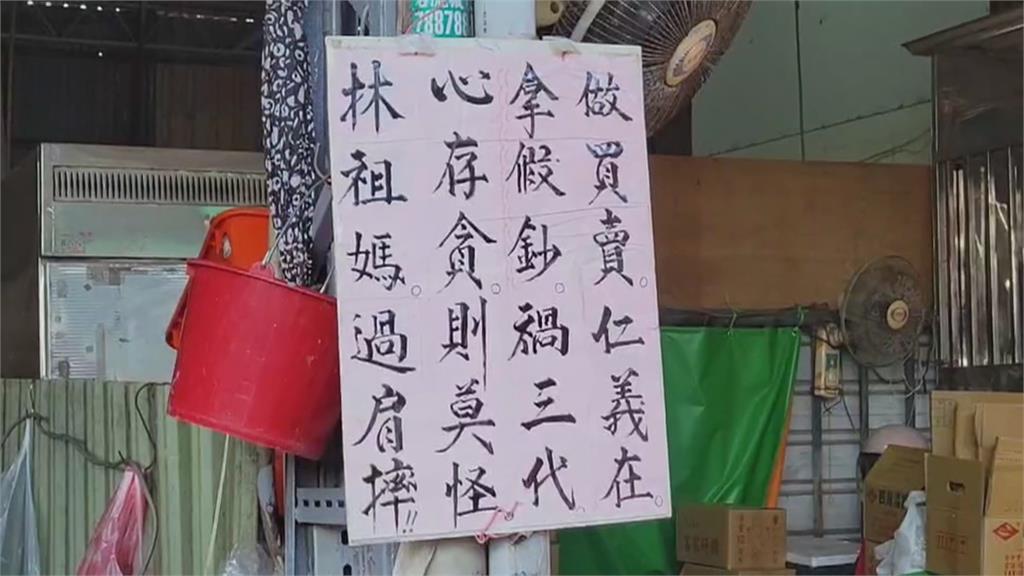 做買賣。仁義在。
拿假鈔。禍三代。
心存貪。則莫怪
林祖媽。過肩摔!!
78878